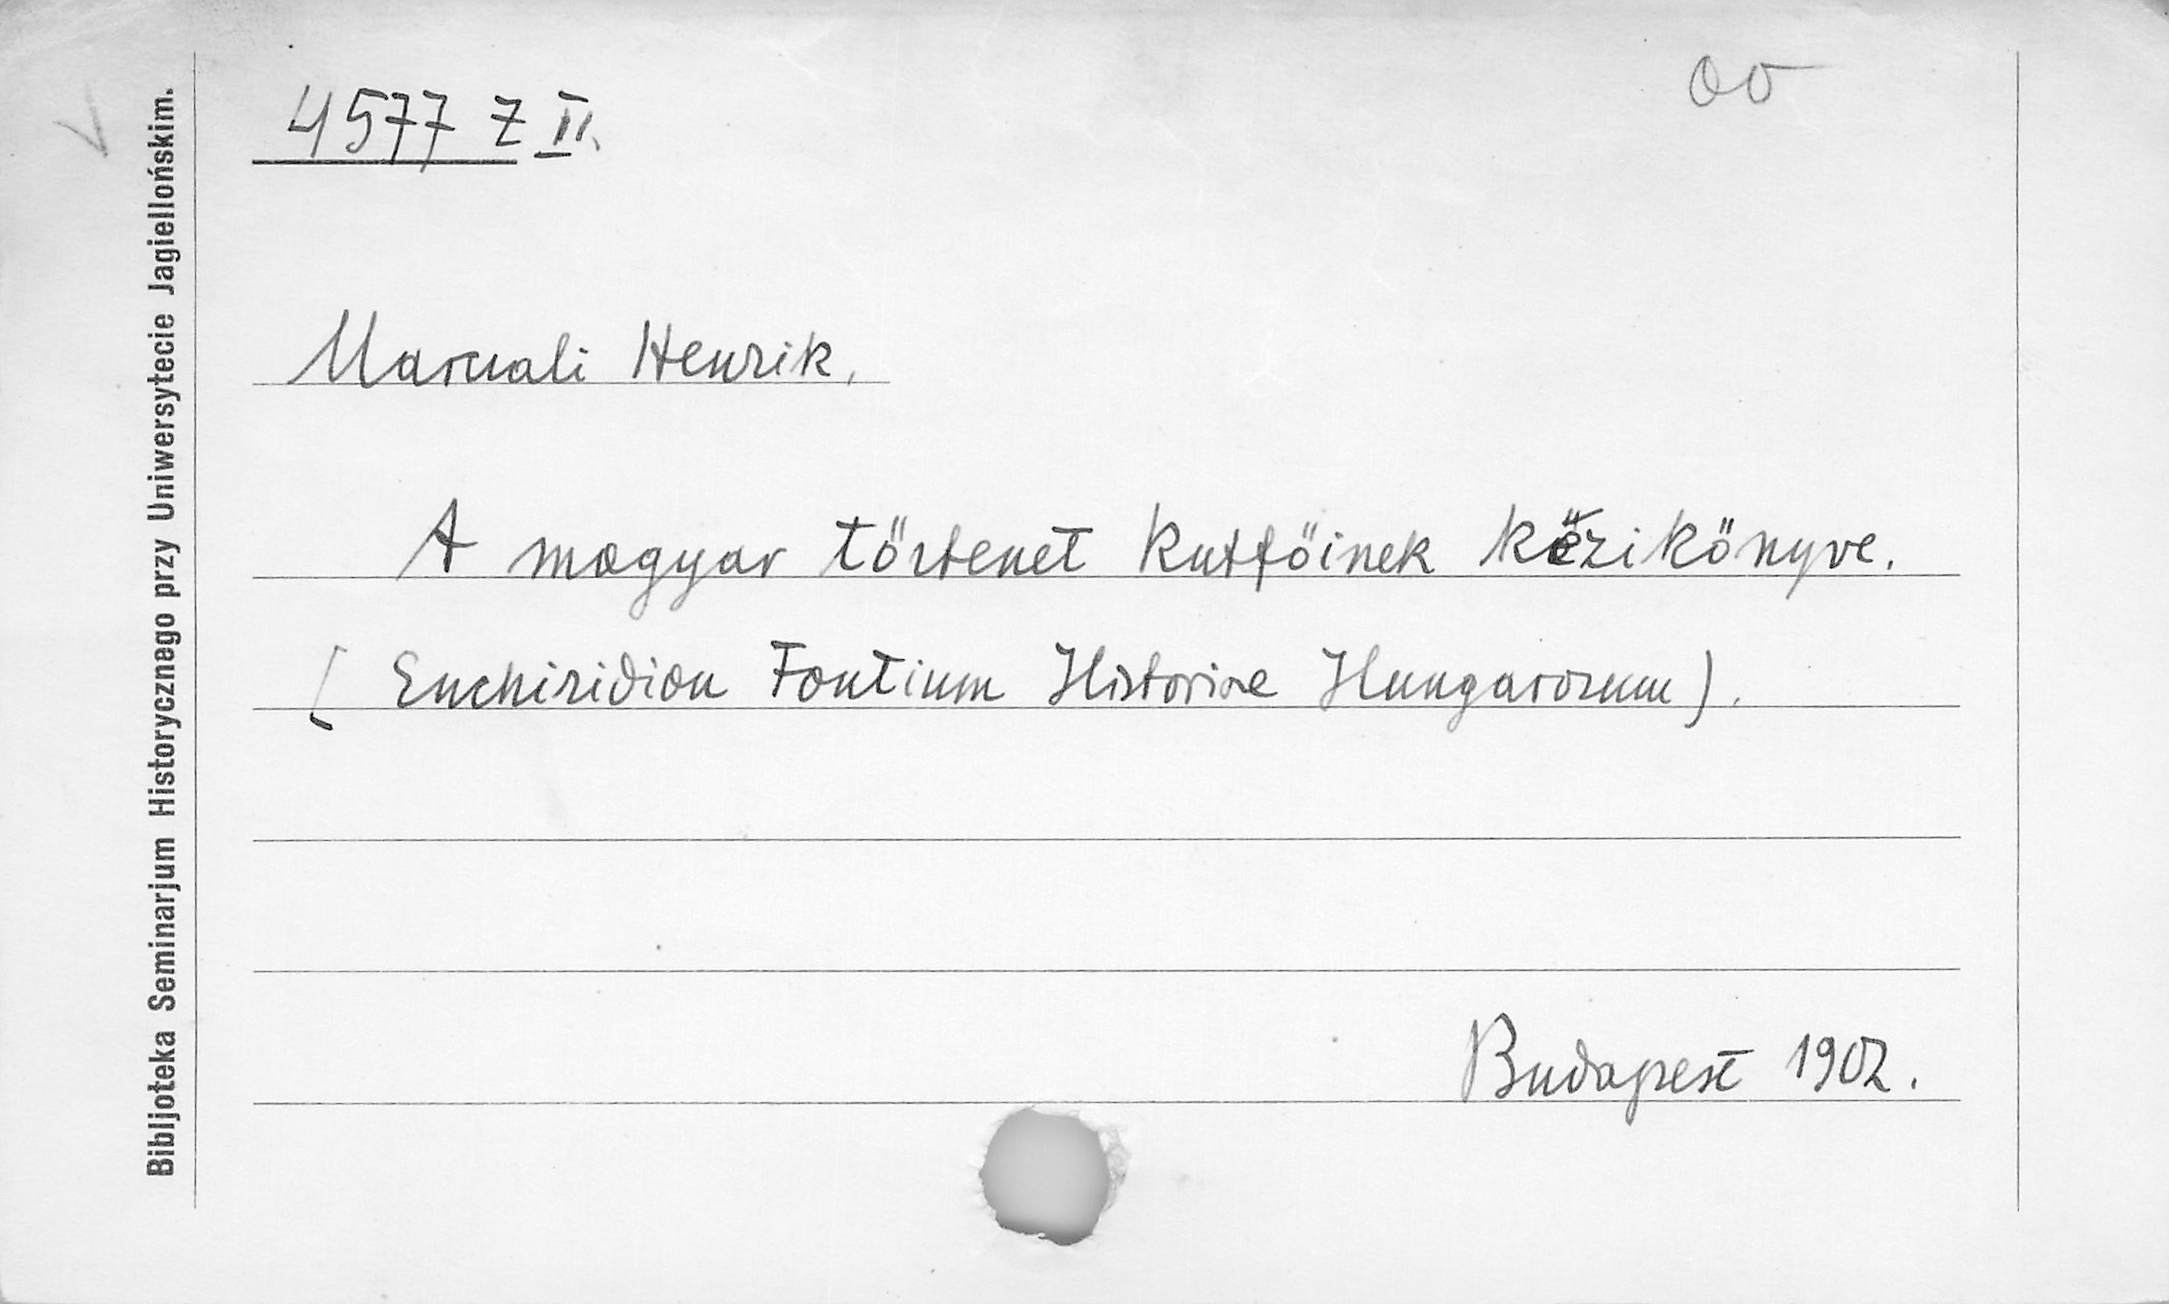 4577 Z II.
oo
Biblioteka Seminarjum Historycznego przy Uniwersytecie Jagiellońskim.
Marcuali Henrik,
A magyar törtenet kutföinek kézikönyve.
( Enchiridion Fontium Historiae Hungarorum ).
Budapest 1902.